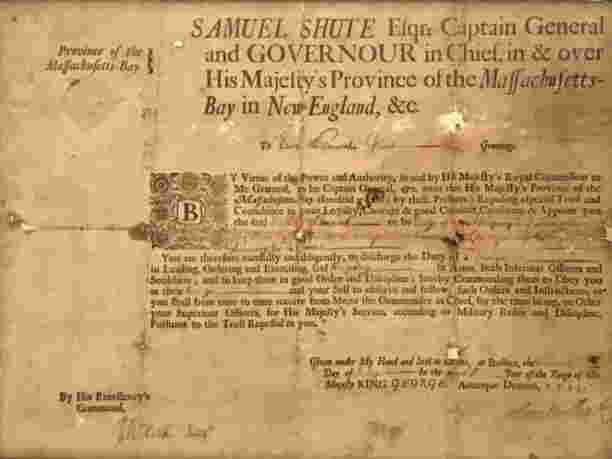 SAMUEL SHUTE Esqr; Captain General
and GOVERNOUR in Chief, in & over
His Majesty's Province of the Massachusetts-
Bay in New-England, &c.
Province of the
Massachusetts-Bay
To Greeting.
BY Virtue of the Power and Authority, in and by His Majesty's Royal Commission to
Me Granted, to be Captain General, &c. over this His Majesty's Province of the
Massachusetts-Bay aforesaid; I do (by these Presents) Reposing especial Trust and
Confidence in your Loyalty, Courage & good Conduct, Constitute & Appoint you
the said to be
You are therefore carefully and diligently, to discharge the Duty of a
in Leading, Ordering and Exercising said in Arms, both Inferiour Officers and
Souldiers; and to keep them in good Order and Discipline; hereby Commanding them to Obey you
as their and your self to observe and follow, such Orders and Instructions, as
you shall from time to time receive from Me or the Commander in Chief, for the time being, or Other
your Superiour Officers, for His Majesty's Service, according to Military Rules and Discipline,
Pursuant to the Trust Reposed in you.
Given under My Hand and Seal at Boston, the
Day of In the Year of the Reign of His
Majesty KING GEORGE, Annoque Domini,
By His Excellency's
Command,